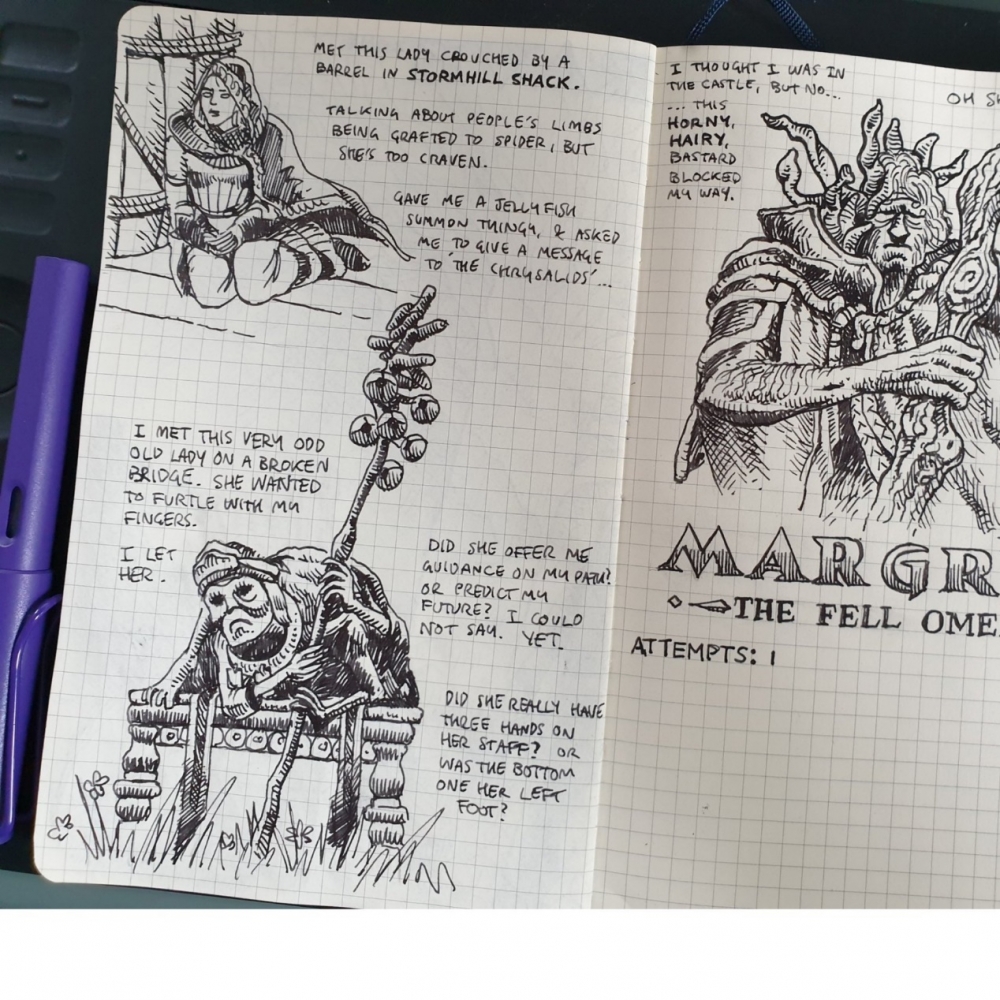 MET THIS LADY CROUCHED BY A
BARREL IN STORMHILL SHACK.
TALKING ABOUT PEOPLE'S LIMBS
BEING GRAFTED TO SPIDER, BUT
SHE'S TOO CRAVEN.
GAVE ME A JELLYFISH
SUMMON THINGY, & ASKED
ME TO GIVE A MESSAGE
TO 'THE CHRYSALIDS'...
I MET THIS VERY ODD
OLD LADY ON A BROKEN
BRIDGE. SHE WANTED
TO FURTLE WITH MY
FINGERS.
I LET
HER.
DID SHE OFFER ME
GUIDANCE ON MY PATH?
OR PREDICT MY
FUTURE? I COULD
NOT SAY. YET.
DID SHE REALLY HAVE
THREE HANDS ON
HER STAFF? OR
WAS THE BOTTOM
ONE HER LEFT
FOOT?
I THOUGHT I WAS IN
THE CASTLE, BUT NO...
... THIS
HORNY,
HAIRY,
BASTARD
BLOCKED
MY WAY.
OH S
MARGR
THE FELL OME
ATTEMPTS: 1